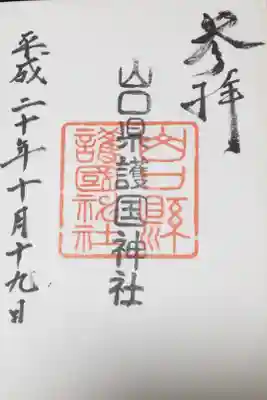 参拝
山口県護国神社
山口縣
護國神社
平成二十年十月十九日